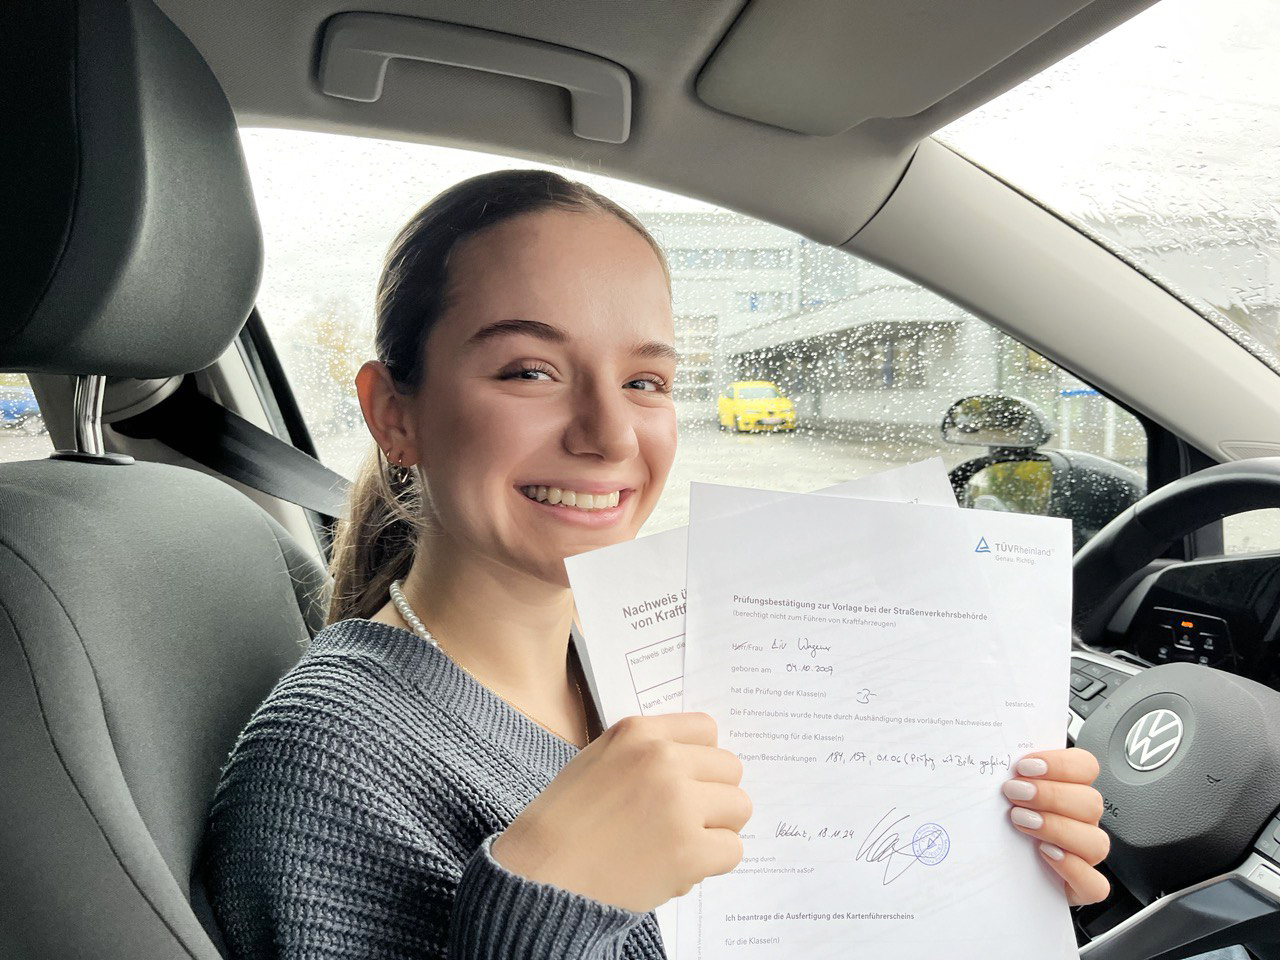 TÜVRheinland
Genau. Richtig.
Nachweis ü
von Kraftf
Nachweis über die
Name, Vornam
Prüfungsbestätigung zur Vorlage bei der Straßenverkehrsbehörde
(berechtigt nicht zum Führen von Kraftfahrzeugen)
Herr/Frau Liv Wagener
geboren am 04.10.2007
hat die Prüfung der Klasse(n) -B- bestanden.
Die Fahrerlaubnis wurde heute durch Aushändigung des vorläufigen Nachweises der
Fahrberechtigung für die Klasse(n) erteilt.
uflagen/Beschränkungen 184, 157, 01.06 (Prüfung mit Brille gefahren)
atum Koblenz, 18.11.24
igung durch
undstempel/Unterschrift aaSoP
Ich beantrage die Ausfertigung des Kartenführerscheins
für die Klasse(n)